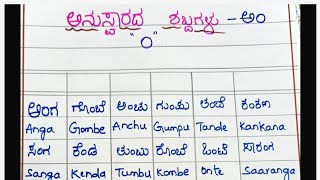 ಅನುಸ್ವಾರದ ಶಬ್ದಗಳು - ಅಂ
"ಂ"
ಅಂಗ ಗೊಂಬೆ ಅಂಚು ಗುಂಪು ತಂದೆ ಕಂಕಣ
Anga Gombe Anchu Gumpu Tande Kankana
ಸಂಗ ಕೆಂಡ ತುಂಬು ಕೊಂಬೆ ಒಂಟೆ ಸಾರಂಗ
Sanga Kenda Tumbu Kombe Onte Saaranga